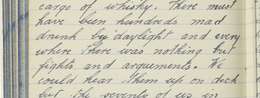 cargo of whisky. There must
have been hundreds mad
drunk by daylight and every
where there was nothing but
fights and arguments. We
could hear them up on deck
but the seventy of us in